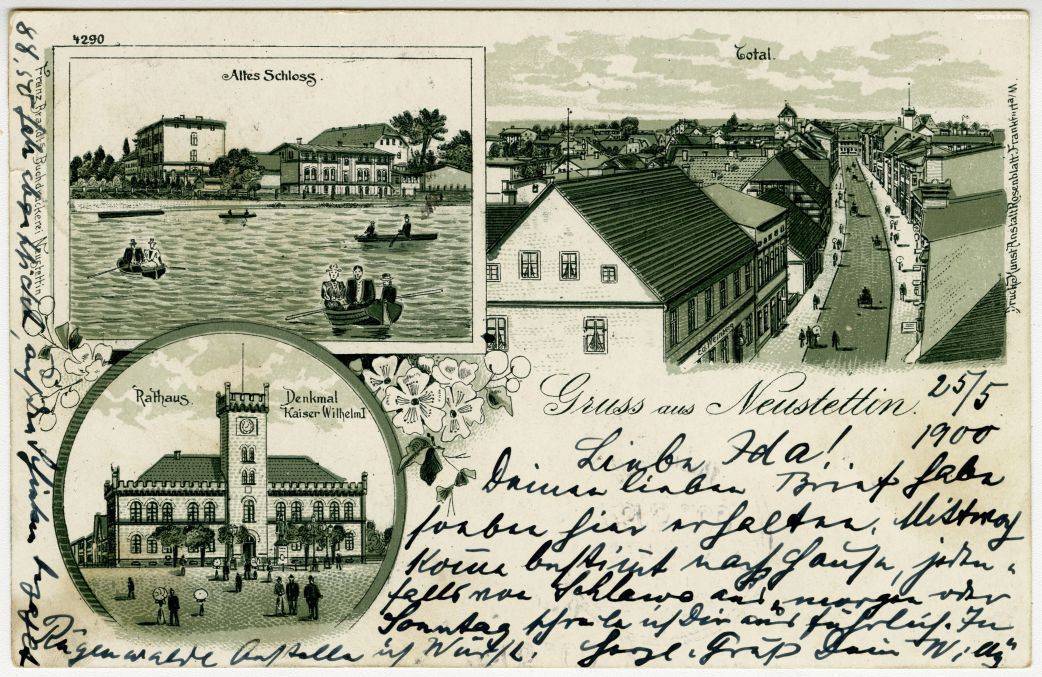 4290
Altes Schloss.
Total.
Franz Brandt's Buchdruckerei Neustettin
Druck Kunst Anstalt Rosenblatt Frankfurt a/M.
Rathaus.
Denkmal
Kaiser Wilhelm I
Gruss aus Neustettin.
25/5
1900
Liebe Ida!
Deinen lieben Brief habe
soeben hier erhalten. Mittwoch
Kome bestimt nach Hause, jeden-
falls von Schlawe aus, morgen oder
Sonntag schreibe ich Dir ausführlich. In
Rügenwalde bestelle ich Würste. Herzl. Gruß Dein Willy
88,50